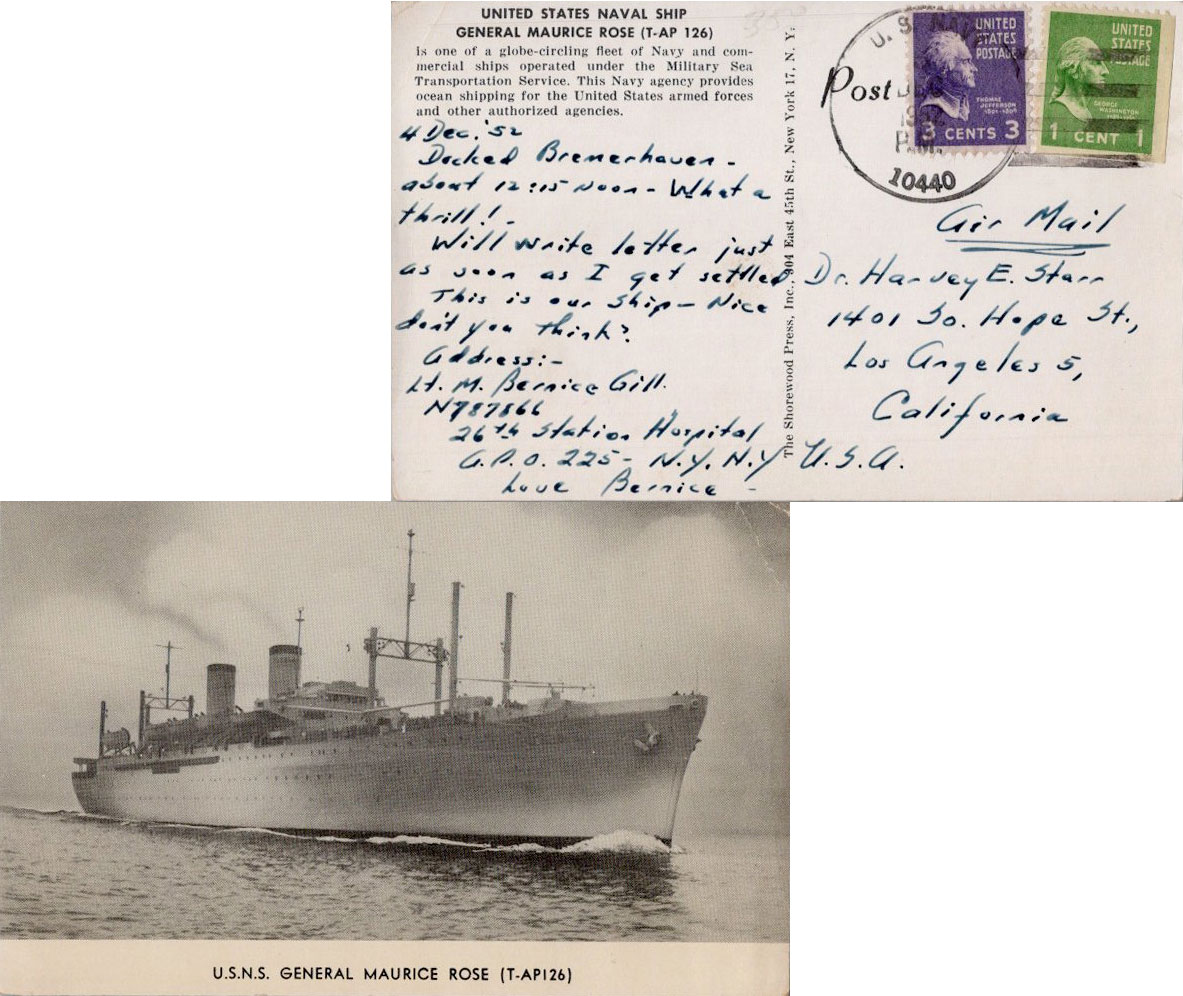 UNITED STATES NAVAL SHIP
GENERAL MAURICE ROSE (T-AP 126)
is one of a globe-circling fleet of Navy and com-
mercial ships operated under the Military Sea
Transportation Service. This Navy agency provides
ocean shipping for the United States armed forces
and other authorized agencies.
4 Dec. '52
Docked Bremerhaven -
about 12:15 noon - What a
thrill! -
Will write letter just
as soon as I get settled
This is our ship - Nice
don't you think?
Address:-
Lt. M. Bernice Gill.
N787866
26th Station Hospital
A.P.O. 225 - N.Y. N.Y
Love Bernice -
The Shorewood Press, Inc., 304 East 45th St., New York 17, N. Y.
Post
U. S. NAVY
P.M.
10440
UNITED
STATES
POSTAGE
THOMAS
JEFFERSON
3 CENTS 3
UNITED
STATES
POSTAGE
GEORGE
WASHINGTON
1 CENT 1
Air Mail
Dr. Harvey E. Starr
1401 So. Hope St.,
Los Angeles 5,
California
U.S.A.
U.S.N.S. GENERAL MAURICE ROSE (T-AP126)